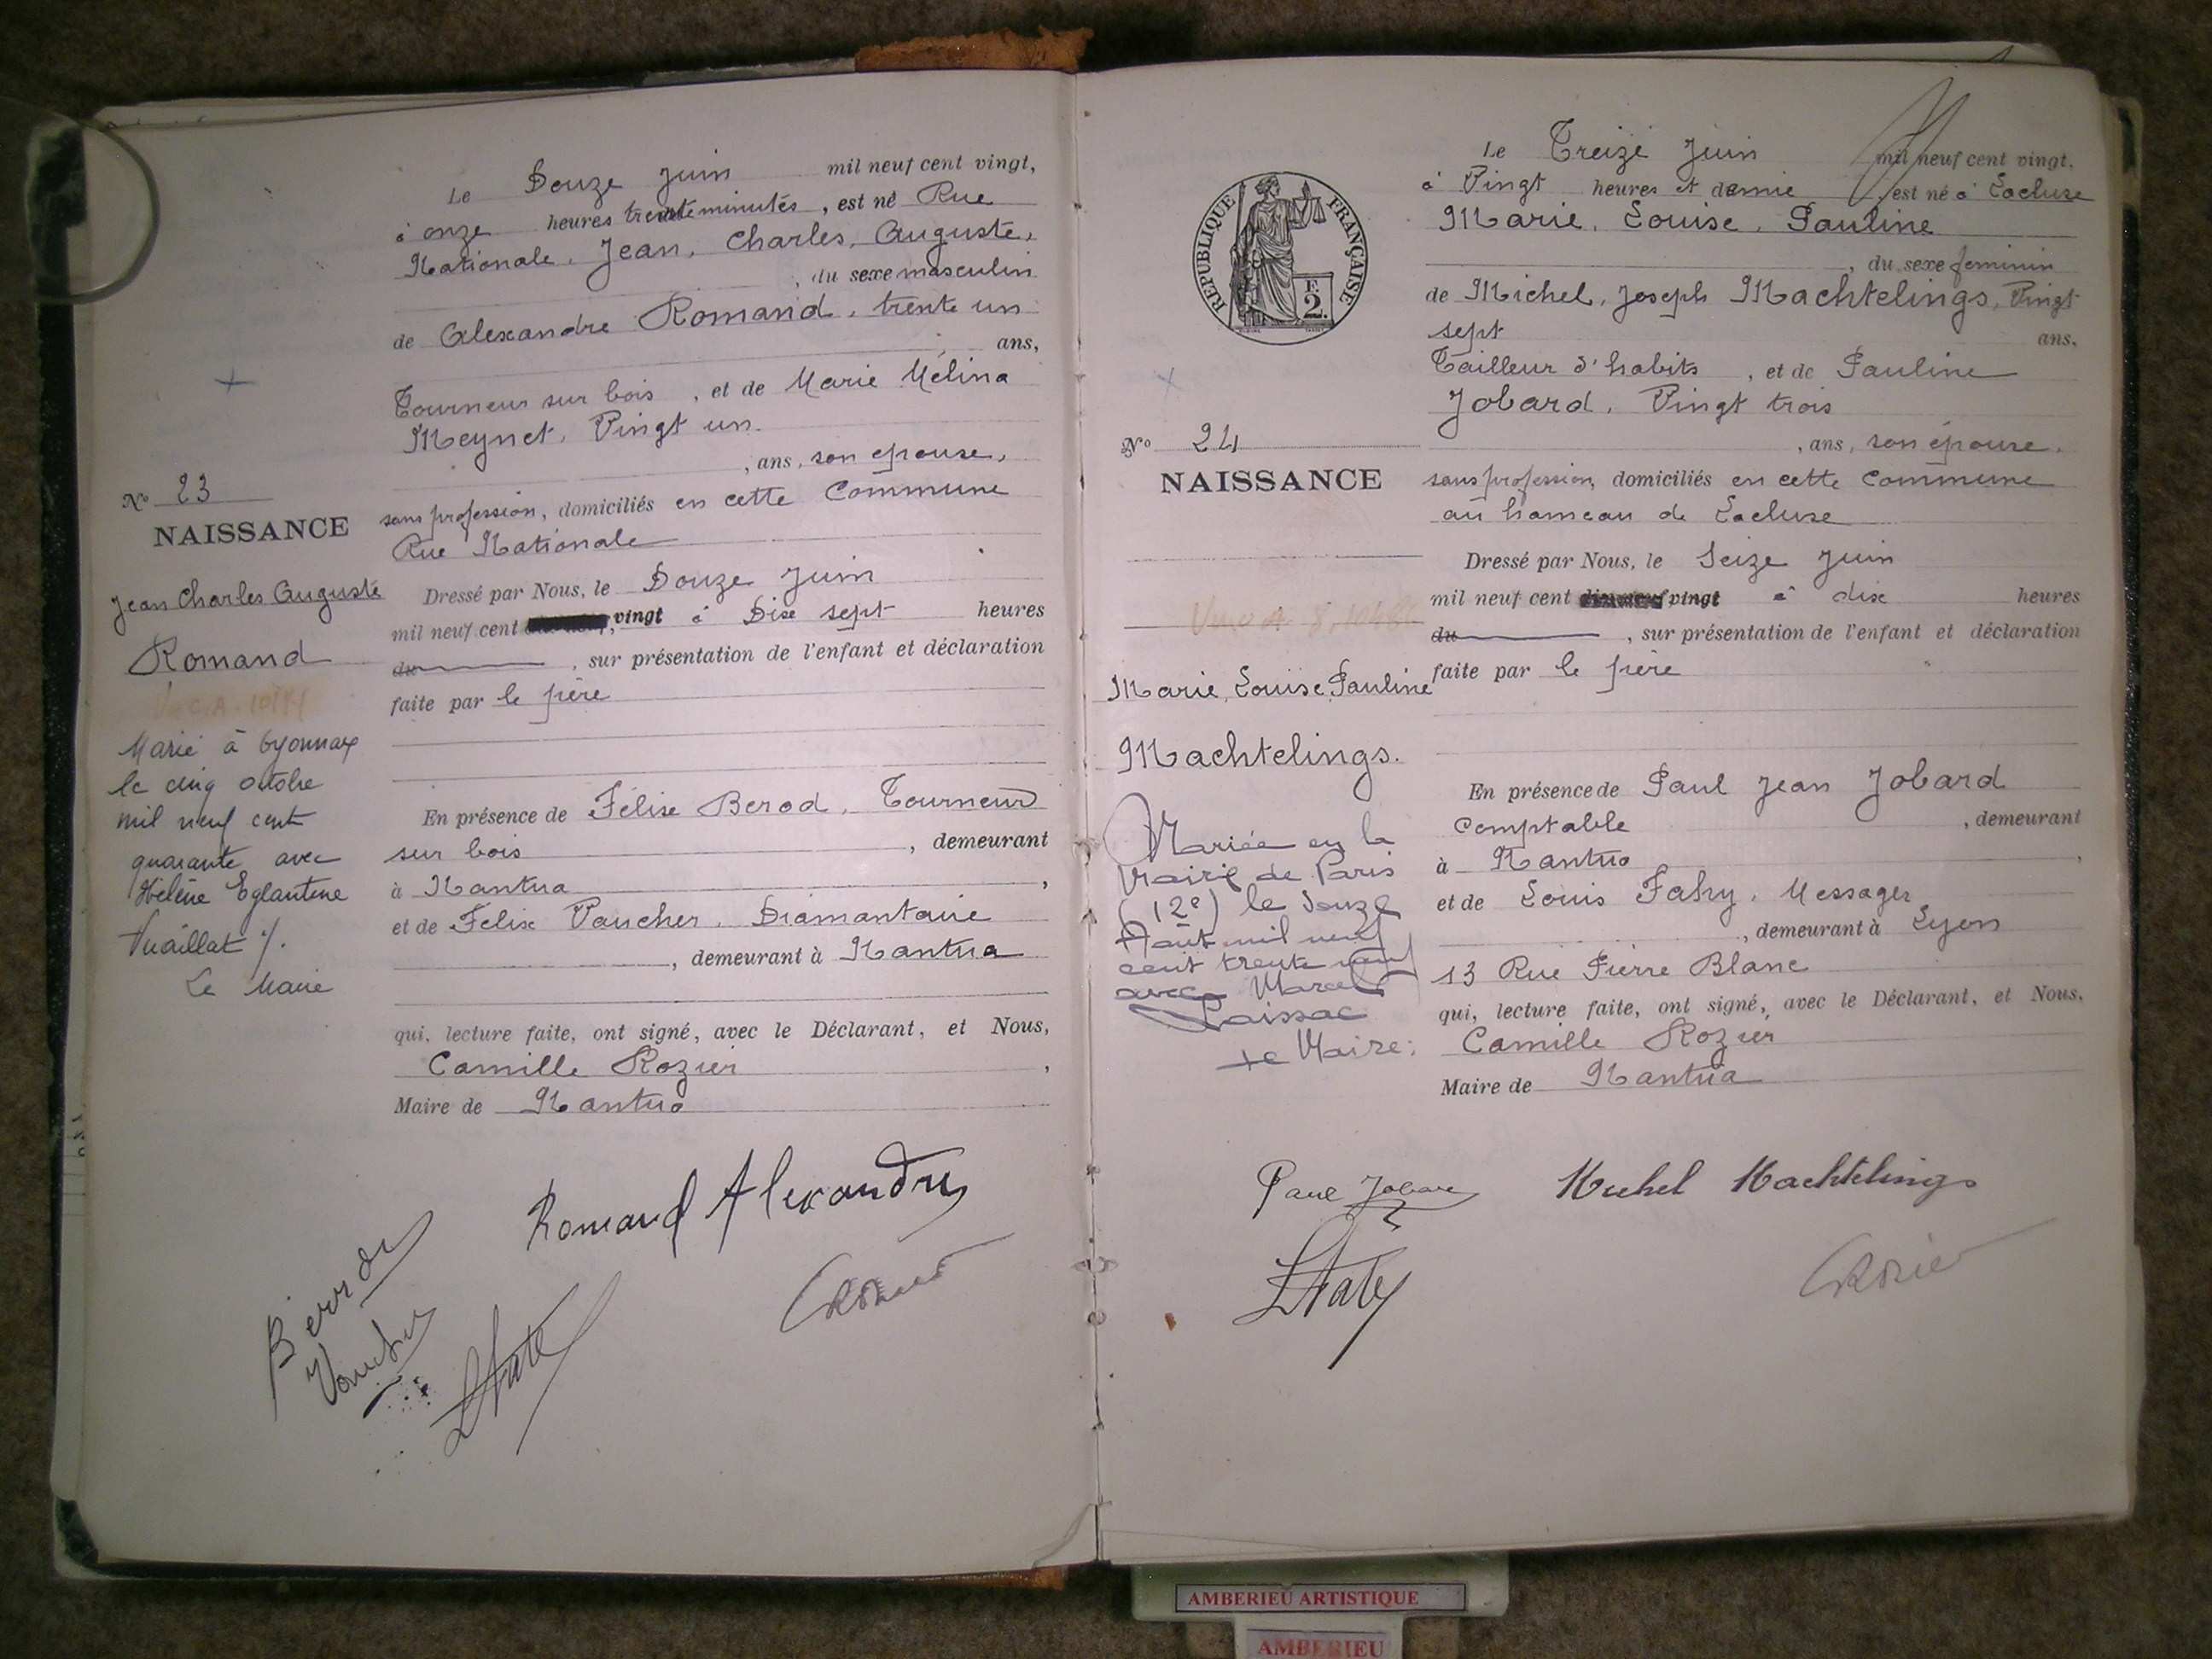 Le Douze Juin mil neuf cent vingt,
à onze heures trente minutes, est né Rue
Nationale. Jean, Charles, Auguste,
, du sexe masculin
de Alexandre Romand, trente un
ans,
Tourneur sur bois, et de Marie Mélina
Meynet, Vingt un
, ans, son épouse,
sans profession, domiciliés en cette Commune
Rue Nationale
No 23
NAISSANCE
Jean Charles Auguste
Romand
Marié à Oyonnax
le cinq octobre
mil neuf cent
quarante avec
Hélène Eglantine
Vuaillat
Le Maire
Dressé par Nous, le Douze Juin
mil neuf cent vingt à Dix sept heures
du , sur présentation de l'enfant et déclaration
faite par le père
En présence de Félix Berod, Tourneur
sur bois , demeurant
à Nantua ,
et de Félix Vaucher, Diamantaire
, demeurant à Nantua
qui, lecture faite, ont signé, avec le Déclarant, et Nous,
Camille Rozier ,
Maire de Nantua
Romand Alexandre
Le Treize Juin mil neuf cent vingt,
à Vingt heures et demie est né à Lacluse
Marie, Louise, Pauline
, du sexe feminin
de Michel, Joseph Machtelings, Vingt
sept ans,
Tailleur d'habits , et de Pauline
Jobard, Vingt trois
, ans, son épouse,
sans profession, domiciliés en cette Commune
au hameau de Lacluse
REPUBLIQUE FRANÇAISE
F.
2.
No 24
NAISSANCE
Marie, Louise, Pauline
Machtelings.
Mariée en la
Mairie de Paris
(12e) le douze
Août mil neuf
cent trente neuf
avec Marcel
Paissac
Le Maire:
Dressé par Nous, le Seize Juin
mil neuf cent dix neuf vingt à dix heures
du , sur présentation de l'enfant et déclaration
faite par le père
En présence de Paul Jean Jobard
Comptable , demeurant
à Nantua ,
et de Louis Fahy, Messager
, demeurant à Lyon
13 Rue Pierre Blanc
qui, lecture faite, ont signé, avec le Déclarant, et Nous,
Camille Rozier
Maire de Nantua
Paul Jobard Michel Machtelings
AMBERIEU ARTISTIQUE
AMBERIEU